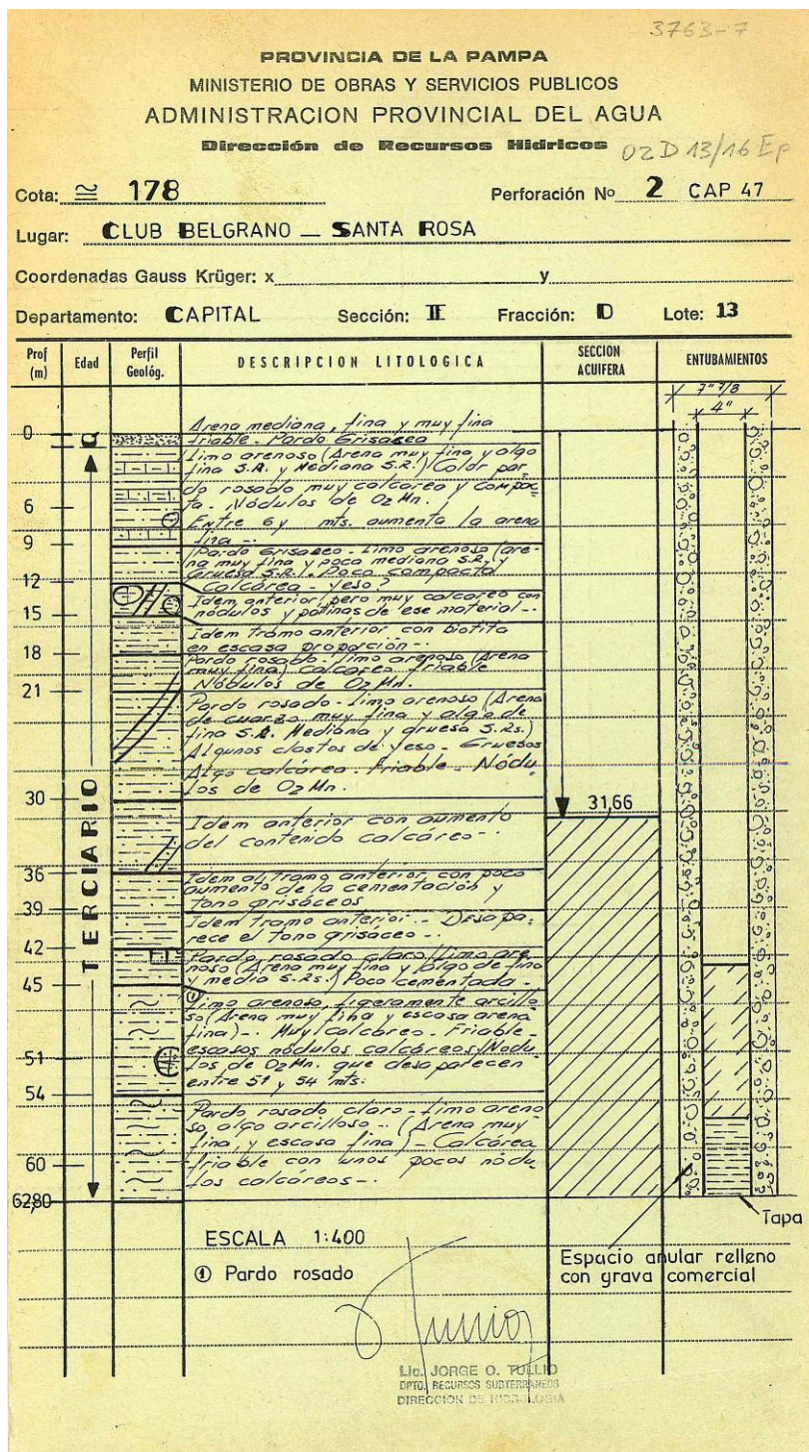 3763-7
PROVINCIA DE LA PAMPA
MINISTERIO DE OBRAS Y SERVICIOS PUBLICOS
ADMINISTRACION PROVINCIAL DEL AGUA
Dirección de Recursos Hídricos
02 D 13/16 Ep
Cota: ≅ 178 Perforación Nº 2 CAP 47
Lugar: CLUB BELGRANO _ SANTA ROSA
Coordenadas Gauss Krüger: x y
Departamento: CAPITAL Sección: II Fracción: D Lote: 13
Prof (m) Edad Perfil Geológ. DESCRIPCION LITOLOGICA SECCION ACUIFERA ENTUBAMIENTOS
7" 7/8
4"
0
6
9
12
15
18
21
30
36
39
42
45
51
54
60
62,80
Q
TERCIARIO
Arena mediana, fina y muy fina
friable - Pardo Grisacea
Limo arenoso (Arena muy fina y algo
fina S.A. y Mediana S.R.) Color par-
do rosado muy calcárea y compac-
ta. Nódulos de O2Mn.
Entre 6 y mts. aumenta la arena
fina -.
Pardo Grisaceo - Limo arenoso (are-
na muy fina y poca mediana S.R. y
gruesa S.R.). Poco compacta
Calcárea - yeso?
Idem anterior, pero muy calcáreo con
nódulos y pátinas de ese material -.
Idem Tramo anterior con biotita
en escasa proporción -.
Pardo rosado - Limo arenoso (Arena
muy fina) Calcáreo friable
Nódulos de O2Mn.
Pardo rosado - Limo arenoso (Arena
de cuarzo muy fina y algo de
fina S.A. Mediana y gruesa S.Rs.)
Algunos clastos de yeso - Gruesos
Algo calcárea - Friable - Nódu-
los de O2Mn.
Idem anterior con aumento
del contenido calcáreo -.
Idem al tramo anterior con poco
aumento de la cementación y
tono grisáceos
Idem tramo anterior -. Desapa-
rece el Tono grisáceo -.
Pardo rosado claro Limo are-
noso (Arena muy fina y algo de fina
y media S.Rs.) Poco cementada -
①
Limo arenoso, ligeramente arcillo
so (Arena muy fina y escasa arena
fina) -. Muy Calcáreo - Friable -
escasos nódulos calcáreos Nodu-
los de O2Mn. que desaparecen
entre 51 y 54 mts.
Pardo rosado claro - Limo areno
so, algo arcilloso -. (Arena muy
fina, y escasa fina) - Calcárea
friable con unos pocos nódu-
los calcáreos -.
31,66
Tapa
Espacio anular relleno
con grava comercial
ESCALA 1:400
① Pardo rosado
Lic. JORGE O. TULLIO
DPTO. RECURSOS SUBTERRANEOS
DIRECCION DE HIDROLOGIA